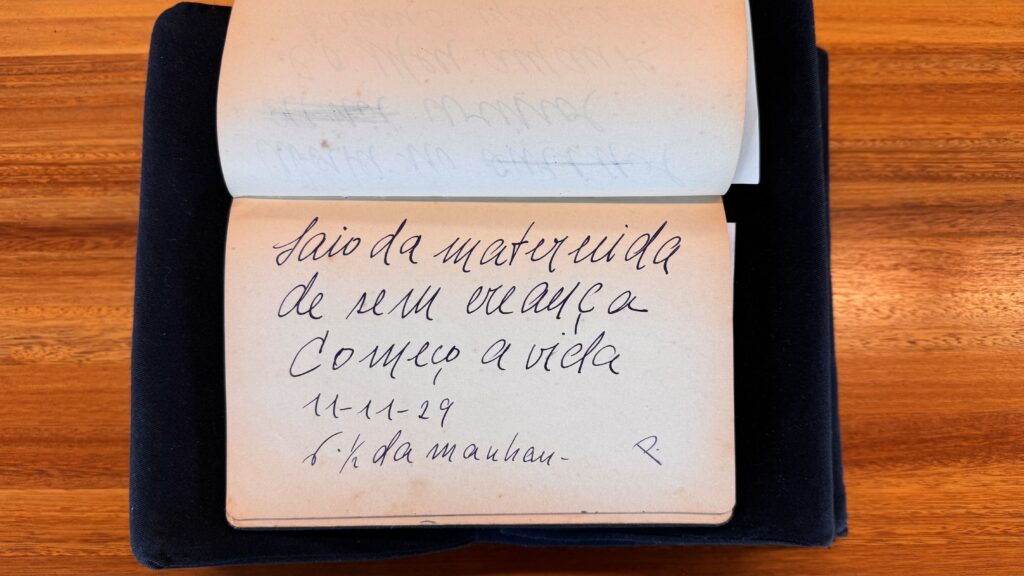 Saio da maternida
de sem creança
Começo a vida
11-11-29
6.½ da manhan-
P.